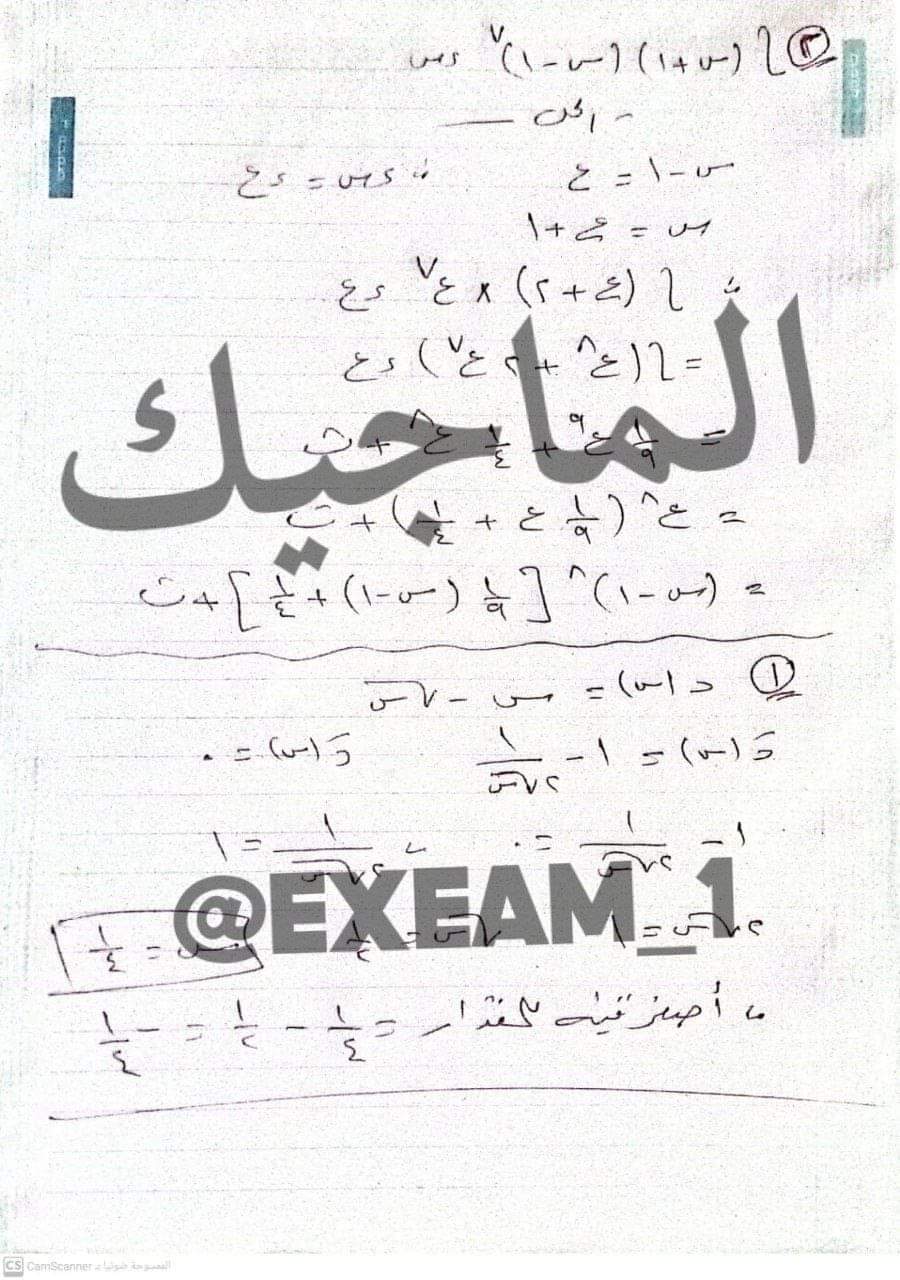 ٣ ∫ (س + ١) (س - ١)^٧ ءس
الحل
س - ١ = ع ∴ ءس = ءع
س = ع + ١
∴ ∫ (ع + ٢) × ع^٧ ءع
= ∫ (ع^٨ + ٢ ع^٧) ءع
= ١/٩ ع^٩ + ١/٤ ع^٨ + ث
= ع^٨ (١/٩ ع + ١/٤) + ث
= (س - ١)^٨ [١/٩ (س - ١) + ١/٤] + ث
الماجيك
١ د(س) = س - √س
دَ(س) = ١ - ١/(٢√س) دَ(س) = ٠
١ - ١/(٢√س) = ٠ ∴ ١/(٢√س) = ١
٢√س = ١ √س = ١/٢ س = ١/٤
@EXEAM_1
∴ أصغر قيمة للمقدار = ١/٤ - ١/٢ = -١/٤
CS CamScanner الممسوحة ضوئيا بـ